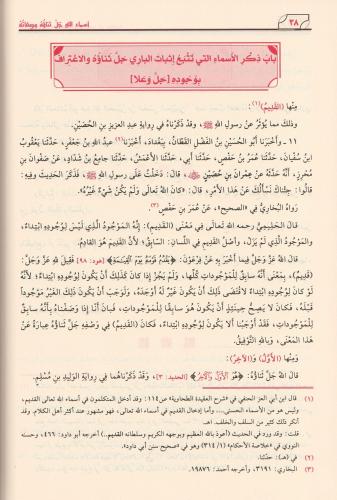 ٣٨
أسماء الله جل ثناؤه وصفاته
باب ذكر الأسماء التي تتبع إثبات الباري جل ثناؤه والاعتراف
بوجوده [جل وعلا]
منها (القديم)(١):
وذلك مما يؤثر عن رسول الله ﷺ، وقد ذكرناه في رواية عبد العزيز بن الحصين.
١١ ـ وأخبرنا أبو الحسين بن الفضل القطان، ببغداد، أخبرنا(٢) عبد الله بن جعفر، حدثنا يعقوب
ابن سفيان، حدثنا عمر بن حفص، حدثنا أبي، حدثنا الأعمش، حدثنا جامع بن شداد، عن صفوان بن
محرز، أنه حدثه عن عمران بن حصين ﷺ، قال: دخلت على رسول الله ﷺ، فذكر الحديث وفيه:
قالوا: جئناك نسألك عن هذا الأمر، قال: «كان الله تعالى ولم يكن شيء غيره».
رواه البخاري في «الصحيح»، عن عمر بن حفص(٣).
قال الحليمي رحمه الله تعالى في معنى (القديم): إنه الموجود الذي ليس لوجوده ابتداء،
والموجود الذي لم يزل، وأصل القديم في اللسان: السابق؛ لأن القديم هو القادم.
قال الله عز وجل فيما أخبر به عن فرعون: ﴿يقدم قومه يوم القيمة﴾ [هود: ٩٨] فقيل لله عز وجل:
(قديم)، بمعنى أنه سابق للموجودات كلها، ولم يجز إذا كان كذلك أن يكون لوجوده ابتداء؛ لأنه لو
كان لوجوده ابتداء لاقتضى ذلك أن يكون غير له أوجده، ولوجب أن يكون ذلك الغير موجودا
قبله، فكان لا يصح حينئذ أن يكون هو سابقا للموجودات، فبان أنا إذا وصفناه بأنه سابق
للموجودات، فقد أوجبنا ألا يكون لوجوده ابتداء، فكان (القديم) في وصفه جل ثناؤه عبارة عن
هذا المعنى، وبالله التوفيق.
ومنها (الأول) و(الآخر):
قال الله جل ثناؤه: ﴿هو الأول والآخر﴾ [الحديد: ٣]، وقد ذكرناهما في رواية الوليد بن مسلم.
(١) قال ابن أبي العز الحنفي في «شرح العقيدة الطحاوية» ص١١٢: وقد أدخل المتكلمون في أسماء الله تعالى القديم،
وليس هو من الأسماء الحسنى... وأما إدخال القديم في أسماء الله تعالى، فهو مشهور عند أكثر أهل الكلام. وقد
أنكر ذلك كثير من السلف والخلف.
قلت: وقد ورد في الحديث «أعوذ بالله العظيم وبوجهه الكريم وسلطانه القديم...» أخرجه أبو داود: ٤٦٦، وحسنه
النووي في «خلاصة الأحكام» (٣١٤/١) وهو في «صحيح سنن أبي داود».
(٢) في (هـ): حدثنا.
(٣) البخاري: ٣١٩١. وأخرجه أحمد: ١٩٨٧٦.